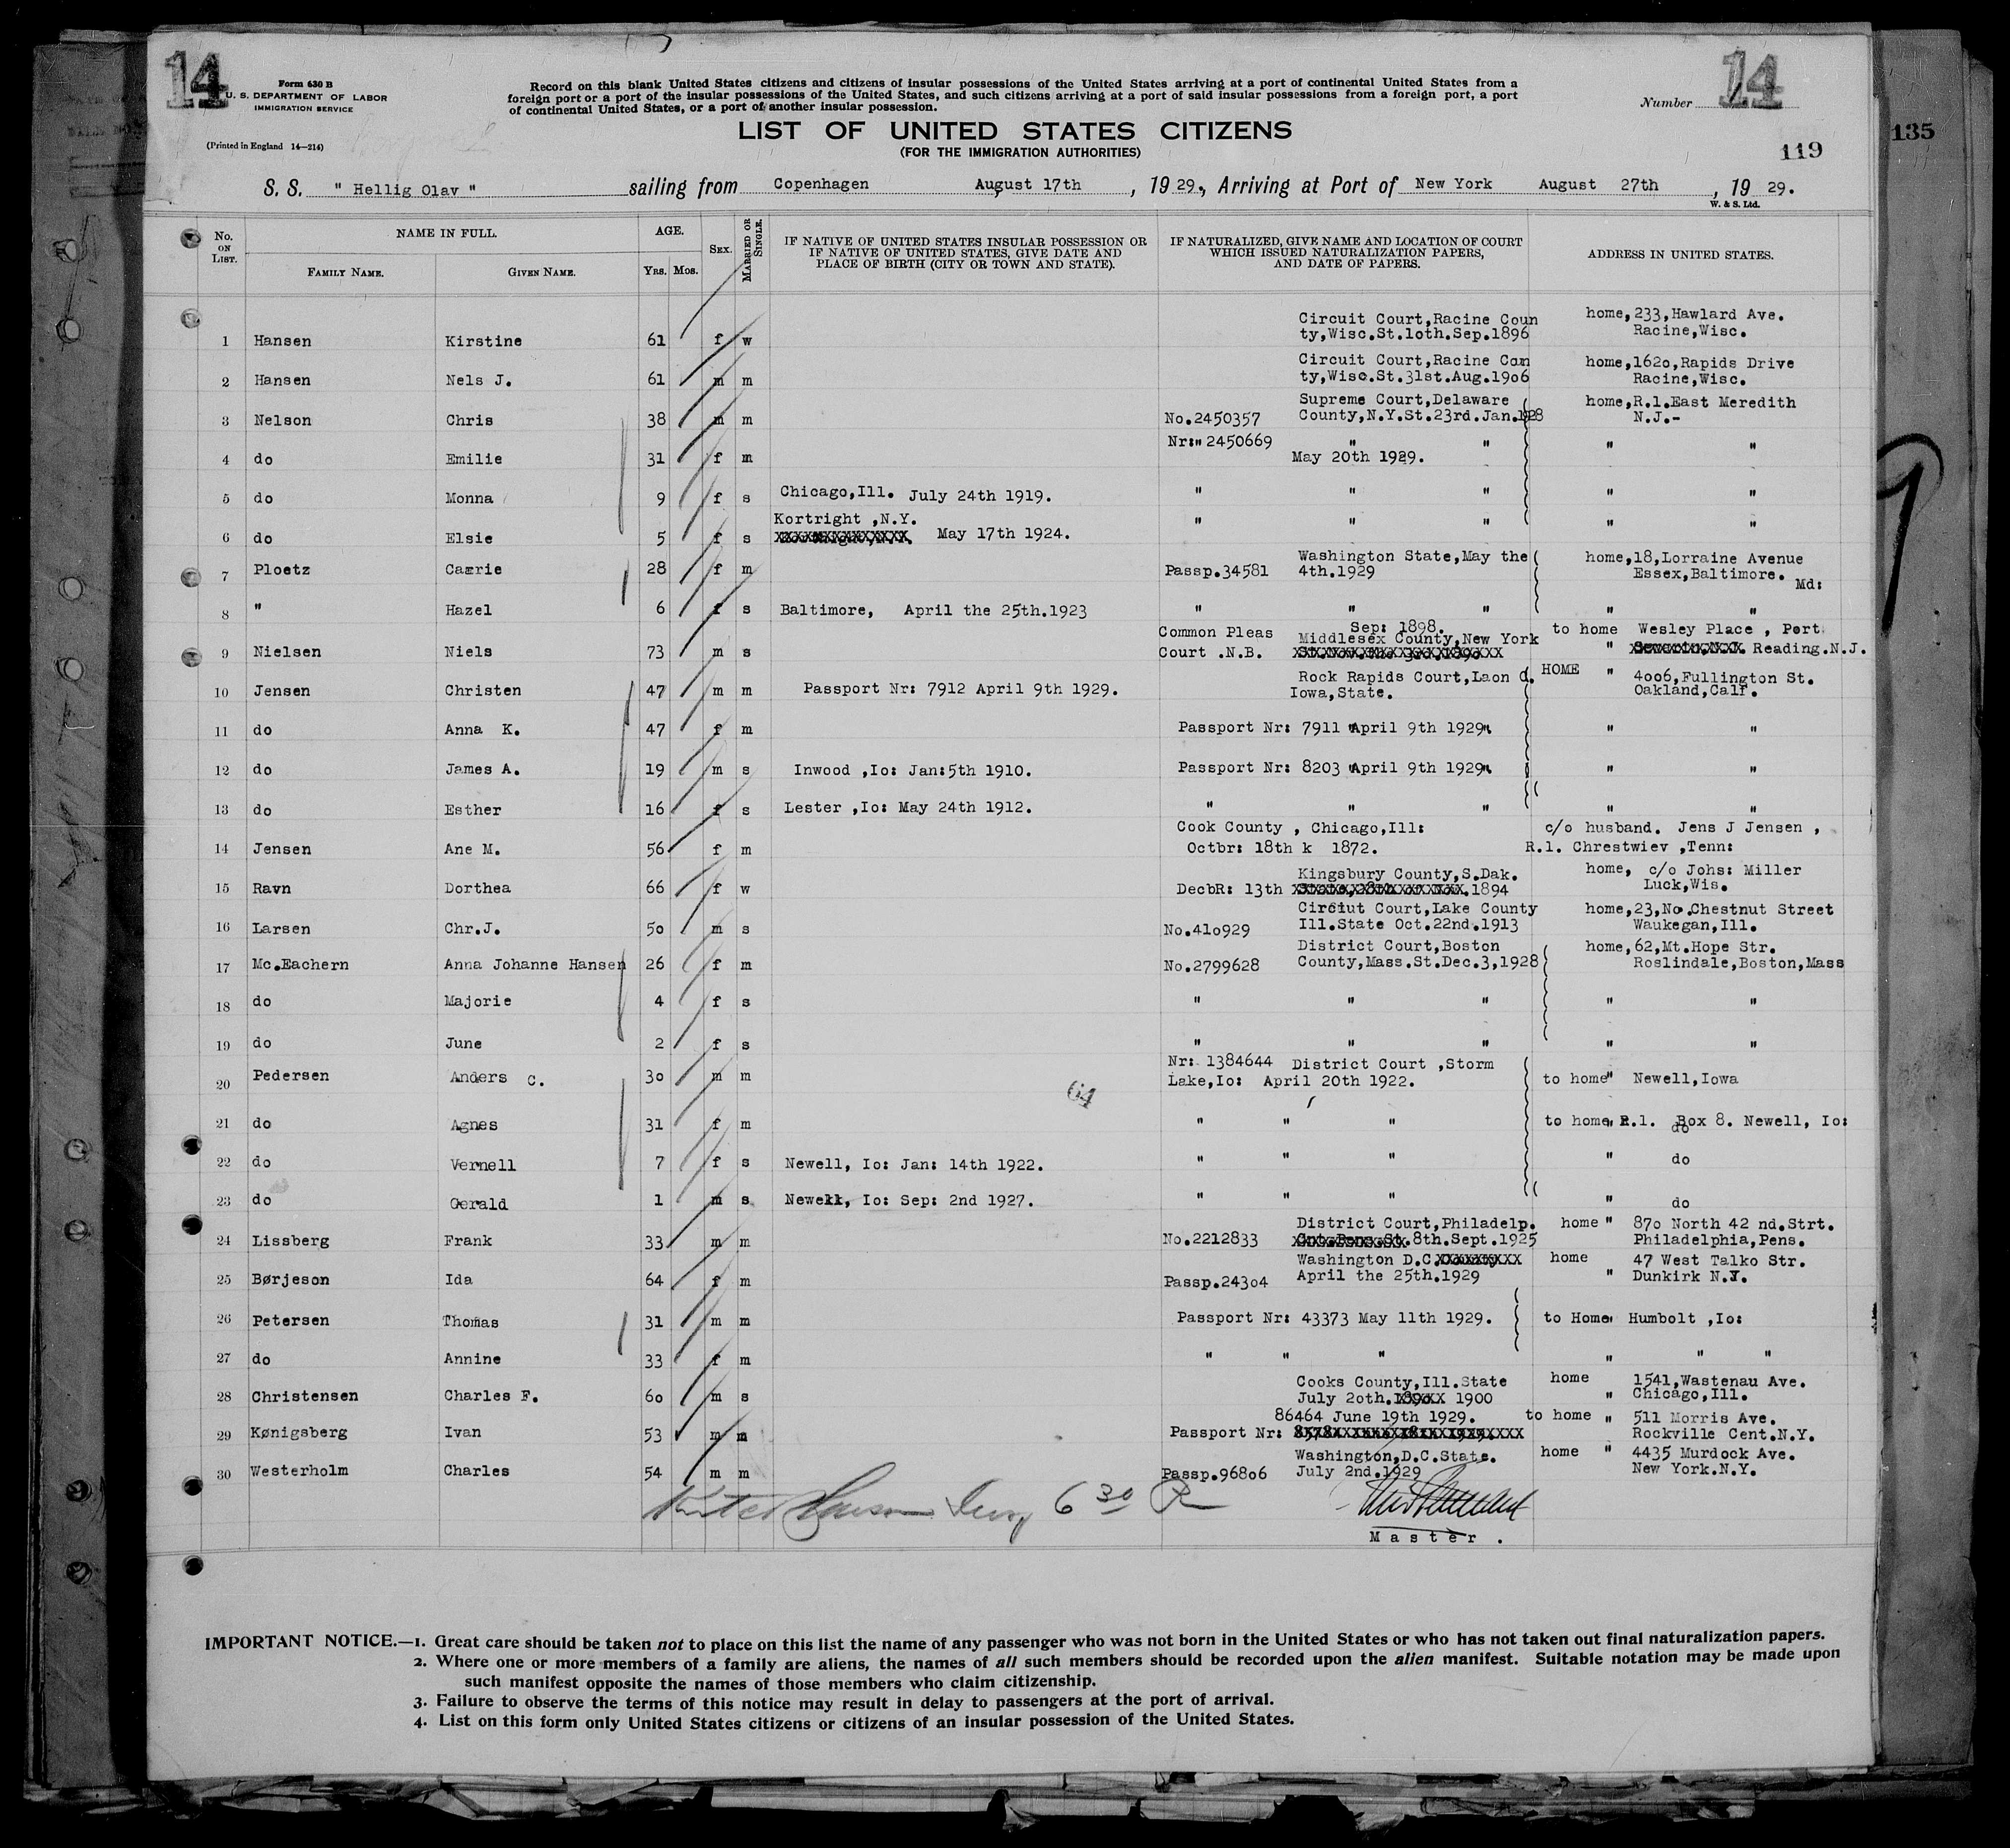 14
Form 630 B
U. S. DEPARTMENT OF LABOR
IMMIGRATION SERVICE
(Printed in England 14—214)
Record on this blank United States citizens and citizens of insular possessions of the United States arriving at a port of continental United States from a
foreign port or a port of the insular possessions of the United States, and such citizens arriving at a port of said insular possessions from a foreign port, a port
of continental United States, or a port of another insular possession.
Number 14
LIST OF UNITED STATES CITIZENS
(FOR THE IMMIGRATION AUTHORITIES)
119
135
S. S. " Hellig Olav " sailing from Copenhagen August 17th, 19 29., Arriving at Port of New York August 27th, 19 29.
W. & S. Ltd.
No. ON LIST. NAME IN FULL. FAMILY NAME. GIVEN NAME. AGE. YRS. MOS. SEX. MARRIED OR SINGLE.
IF NATIVE OF UNITED STATES INSULAR POSSESSION OR
IF NATIVE OF UNITED STATES, GIVE DATE AND
PLACE OF BIRTH (CITY OR TOWN AND STATE).
IF NATURALIZED, GIVE NAME AND LOCATION OF COURT
WHICH ISSUED NATURALIZATION PAPERS,
AND DATE OF PAPERS.
ADDRESS IN UNITED STATES.
Circuit Court,Racine Coun home,233,Hawlard Ave.
1 Hansen Kirstine 61 f w ty,Wisc.St.1oth.Sep.1896 Racine,Wisc.
Circuit Court,Racine Con home,162o,Rapids Drive
2 Hansen Nels J. 61 m m ty,Wisc.St.31st.Aug.19o6 Racine,Wisc.
Supreme Court,Delaware home,R.1.East Meredith
3 Nelson Chris 38 m m No.2450357 County,N.Y.St.23rd.Jan.1928 N.J.-
Nr:" 2450669 " " " "
4 do Emilie 31 f m May 20th 1929.
5 do Monna 9 f s Chicago,Ill. July 24th 1919. " " " " "
Kortright ,N.Y. " " " " "
6 do Elsie 5 f s May 17th 1924.
Washington State,May the home,18,Lorraine Avenue
7 Ploetz Caerie 28 f m Passp.34581 4th.1929 Essex,Baltimore. Md:
8 " Hazel 6 f s Baltimore, April the 25th.1923 " " " " "
Common Pleas Sep: 1898. to home Wesley Place , Port
Middlesex County,New York
9 Nielsen Niels 73 m s Court .N.B. " Reading.N.J.
Rock Rapids Court,Laon d. HOME " 4oo6,Fullington St.
10 Jensen Christen 47 m m Passport Nr: 7912 April 9th 1929. Iowa,State. Oakland,Calf.
11 do Anna K. 47 f m Passport Nr: 7911 "April 9th 1929". " "
12 do James A. 19 m s Inwood ,Io: Jan:5th 1910. Passport Nr: 8203 "April 9th 1929". " "
13 do Esther 16 f s Lester ,Io: May 24th 1912. " " " " "
Cook County , Chicago,Ill: c/o husband. Jens J Jensen ,
14 Jensen Ane M. 56 f m Octbr: 18th k 1872. R.1. Chrestwiev ,Tenn:
Kingsbury County,S.Dak. home, c/o Johs: Miller
15 Ravn Dorthea 66 f w DecbR: 13th .1894 Luck,Wis.
Circiut Court,Lake County home,23,No.Chestnut Street
16 Larsen Chr.J. 5o m s No.41o929 Ill.State Oct.22nd.1913 Waukegan,Ill.
District Court,Boston home,62,Mt.Hope Str.
17 Mc.Eachern Anna Johanne Hansen 26 f m No.2799628 County,Mass.St.Dec.3,1928 Roslindale,Boston,Mass
18 do Majorie 4 f s " " " " "
19 do June 2 f s " " " " "
Nr: 1384644 District Court ,Storm
20 Pedersen Anders C. 3o m m 64 Lake,Io: April 20th 1922. to home" Newell,Iowa
21 do Agnes 31 f m " " " to home R.1. Box 8. Newell, Io:
do
22 do Vernell 7 f s Newell, Io: Jan: 14th 1922. " " " " do
23 do Gerald 1 m s Newell, Io: Sep: 2nd 1927. " " " " do
District Court,Philadelp. home " 87o North 42 nd.Strt.
24 Lissberg Frank 33 m m No.2212833 8th.Sept.1925 Philadelphia,Pens.
Washington D.C. home 47 West Talko Str.
25 Børjeson Ida 64 f m Passp.243o4 April the 25th.1929 " Dunkirk N.Y.
26 Petersen Thomas 31 m m Passport Nr: 43373 May 11th 1929. to Home" Humbolt ,Io:
27 do Annine 33 f m " " " " " "
Cooks County,Ill.State home 1541,Wastenau Ave.
28 Christensen Charles F. 6o m s July 2oth. 1900 " Chicago,Ill.
86464 June 19th 1929. to home " 511 Morris Ave.
29 Kønigsberg Ivan 53 m m Passport Nr: Rockville Cent.N.Y.
Washington,D.C.State. home " 4435 Murdock Ave.
30 Westerholm Charles 54 m m Passp.968o6 July 2nd.1929 New York.N.Y.
6 30 P
Master .
IMPORTANT NOTICE.—1. Great care should be taken not to place on this list the name of any passenger who was not born in the United States or who has not taken out final naturalization papers.
2. Where one or more members of a family are aliens, the names of all such members should be recorded upon the alien manifest. Suitable notation may be made upon
such manifest opposite the names of those members who claim citizenship.
3. Failure to observe the terms of this notice may result in delay to passengers at the port of arrival.
4. List on this form only United States citizens or citizens of an insular possession of the United States.